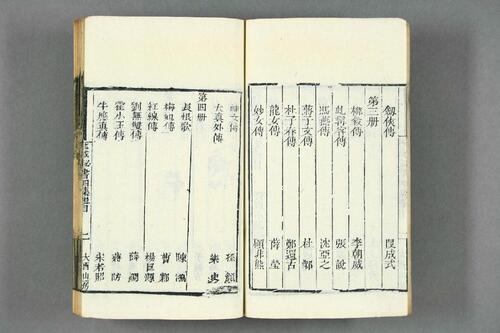 劒俠傳 段成式
第三册
柳毅傳 李朝威
虬髯客傳 張說
馮燕傳 沈亞之
蔣子文傳
杜子春傳 鄭還古
龍女傳 薛瑩
妙女傳 顧非熊
神女傳 孫頠
太真外傳 樂史
第四册
長恨歌 陳鴻
梅妃傳 曹鄴
紅線傳 楊巨源
劉無雙傳 薛調
霍小玉傳 蔣防
牛應貞傳 宋若昭
龍威秘書四集總目 一 大酉山房